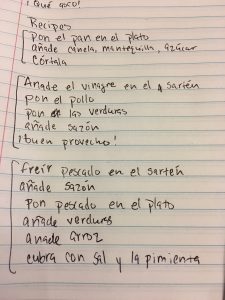 ¡Qué asco!
Recipes
Pon el pan en el plato
añade canela, mantequilla, azúcar
Córtala
Añade el vinagre en el sartén
pon el pollo
pon las verduras
añade sazón
¡buen provecho!
freír pescado en el sartén
añade sazón
pon pescado en el plato
añade verduras
añade arroz
cubra con sal y la pimienta